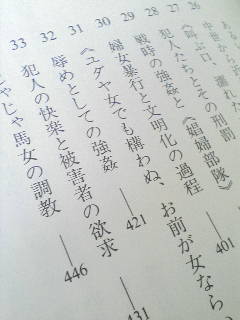 26
27
28
29
30
31
32
33
《叫ぶ口、濡れた
《娼婦部隊》――401
犯人たちとその刑罰
戦時の強姦と
婦女暴行と文明化の過程――421
《ユダヤ女でも構わぬ、お前が女なら、
辱めとしての強姦――431
犯人の快楽と被害者の欲求
じゃじゃ馬女の調教――446